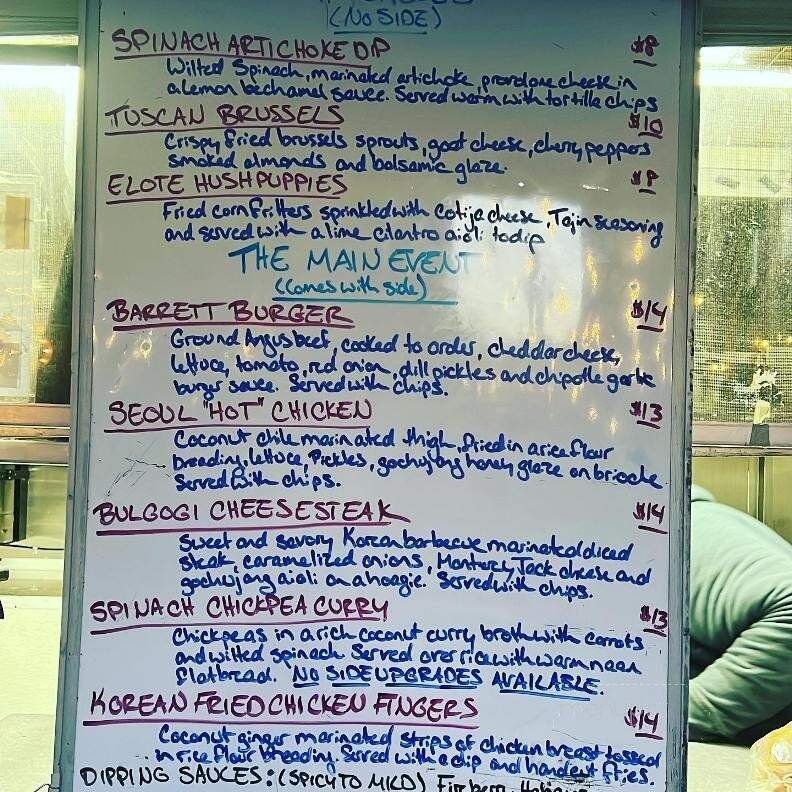 (NO SIDE)
SPINACH ARTICHOKE DIP $8
Wilted Spinach, marinated artichoke, provolone cheese in
a lemon bechamel sauce. Served warm with tortilla chips
TUSCAN BRUSSELS $10
Crispy fried brussels sprouts, goat cheese, cherry peppers
smoked almonds and balsamic glaze.
ELOTE HUSHPUPPIES
Fried corn fritters sprinkled with Cotija cheese, Tajin seasoning
and served with a lime cilantro aioli to dip
THE MAIN EVENT
(Comes with side)
BARRETT BURGER $14
Ground Angus beef, cooked to order, cheddar cheese,
lettuce, tomato, red onion, dill pickles and chipotle garlic
burger sauce. Served with chips.
SEOUL "HOT" CHICKEN $13
Coconut chile marinated thigh, fried in a rice flour
breading, lettuce, Pickles, gochujang honey glaze on brioche
Served with chips.
BULGOGI CHEESESTEAK $14
Sweet and savory Korean barbecue marinated diced
steak, caramelized onions, Monterey Jack cheese and
gochujang aioli on a hoagie. Served with chips.
SPINACH CHICKPEA CURRY $13
Chickpeas in a rich coconut curry broth with carrots
and wilted spinach Served over rice with warm naan
flatbread. NO SIDE UPGRADES AVAILABLE.
KOREAN FRIED CHICKEN FINGERS $14
Coconut ginger marinated strips of chicken breast tossed
in rice flour breading. Served with a dip and handcut fries.
DIPPING SAUCES: (SPICY TO MILD)